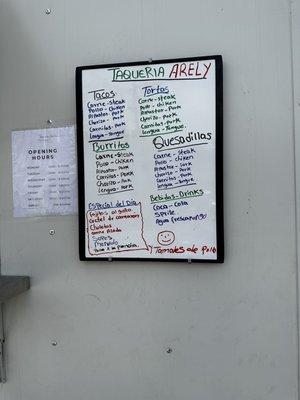 TAQUERIA ARELY
Tacos
Carne-steak
Pollo - chicken
Pastor-Pork
Chorizo - Pork
Carnitas-Pork
Lengua-Tongue
Burritos
Carne-steak
Pollo - chicken
Pastor-Pork
Carnitas-Pork
Chorizo-Pork
Lengua-Pork
Especial del Dia
Fajitas al gusto
Coctel de camarones
Chuletas
carne Asada
Sopes
Tortas
Carne-steak
Pollo - chicken
Pastor-Pork
Chorizo-Pork
Carnitas-Pork
Lengua-Tongue
Quesadillas
Carne-Steak
Pollo - chicken
Pastor - Pork
Chorizo - Pork
Carnitas-Pork
Lengua-Tongue
Bebidas-Drinks
Coca-Cola
Sprite
Agua fresca
Tamales de Pollo
OPENING
HOURS
MONDAY
TUESDAY
WEDNESDAY
THURSDAY
FRIDAY
SATURDAY
SUNDAY